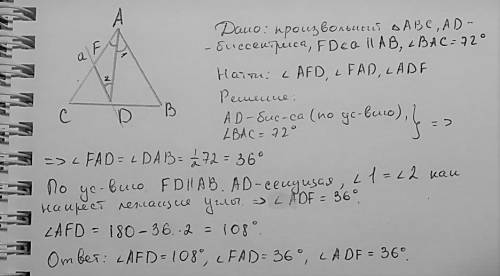 A
a F
1
2
C D B
Дано: произвольный △ABC, AD-
-биссектриса, FD⊂a ∥ AB, ∠BAC=72°
Найти: ∠AFD, ∠FAD, ∠ADF
Решение:
AD-бис-са (по ус-вию),
∠BAC = 72° } =>
=> ∠FAD = ∠DAB = 1/2 72 = 36°
По ус-вию FD∥AB. AD-секущая, ∠1=∠2 как
накрест лежащие углы => ∠ADF = 36°.
∠AFD = 180-36·2 = 108°.
Ответ: ∠AFD=108°, ∠FAD=36°, ∠ADF=36°.